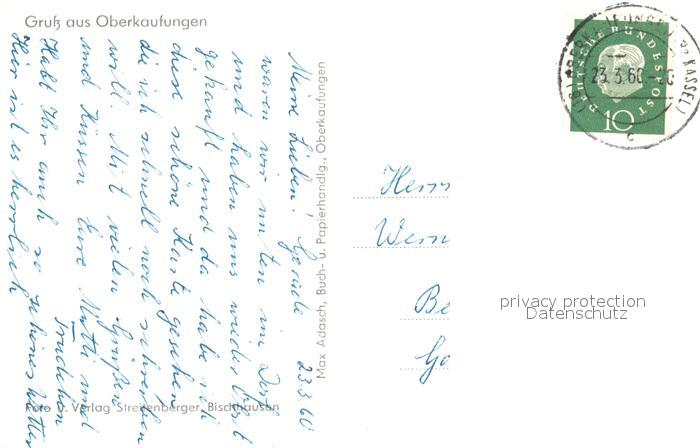 Gruß aus Oberkaufungen
23.3.60
Meine Lieben! Gerade
waren wir unten im Dorf
und haben uns wieder Obst
gekauft und da habe ich
diese schöne Karte gesehen
die ich schnell noch schreiben
will. Mit vielen Grüßen
und Küssen Eure Mutti und
Trudchen
Habt Ihr auch so schönes Wetter
Hier ist es herrlich
Max Adasch, Buch- u. Papierhandlg., Oberkaufungen
Foto u. Verlag Streitenberger, Bischhausen
DEUTSCHE BUNDESPOST
10
(16) OBERKAUFUNGEN (Bz KASSEL)
23.3.60.
c
Herrn
Wern
Be
Go
privacy protection
Datenschutz